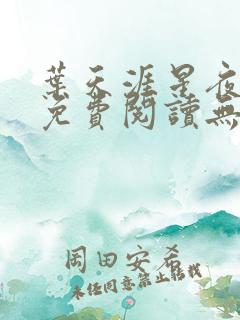 葉天涯星夜
免費閱讀無
岡田安希
未经同意禁止转载